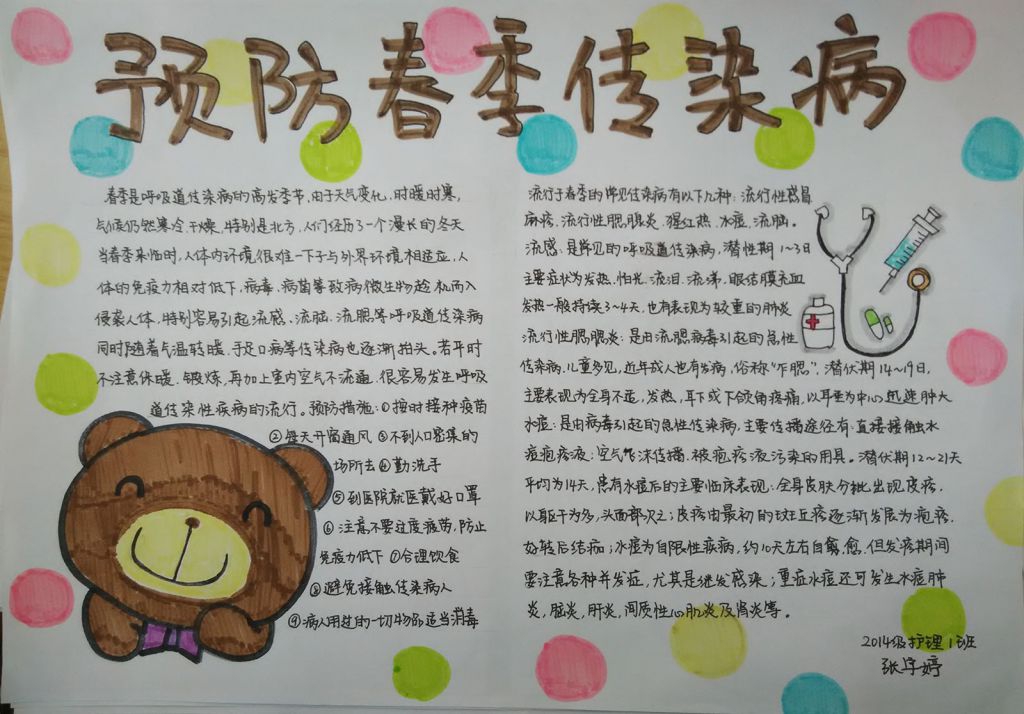 预防春季传染病
春季是呼吸道传染病的高发季节,由于天气变化,时暖时寒,
气候仍然寒冷、干燥,特别是北方,人们经历了一个漫长的冬天
当春季来临时,人体内环境很难一下子与外界环境相适应,人
体的免疫力相对低下,病毒、病菌等致病微生物趁机而入
侵袭人体,特别容易引起流感、流脑、流腮等呼吸道传染病
同时随着气温转暖,手足口病等传染病也逐渐抬头。若平时
不注意休暖、锻炼,再加上室内空气不流通,很容易发生呼吸
道传染性疾病的流行。预防措施:①按时接种疫苗
②每天开窗通风 ③不到人口密集的
场所去 ④勤洗手
⑤到医院就医戴好口罩
⑥注意不要过度疲劳,防止
免疫力低下 ⑦合理饮食
⑧避免接触传染病人
⑨病人用过的一切物品适当消毒
流行于春季的常见传染病有以下几种:流行性感冒
麻疹、流行性腮腺炎、猩红热、水痘、流脑。
流感:是常见的呼吸道传染病,潜性期1~3日
主要症状为发热、怕光、流泪、流涕,眼结膜充血
发热一般持续3~4天,也有表现为较重的肺炎
流行性腮腺炎:是由流腮病毒引起的急性
传染病,儿童多见,近年成人也有发病,俗称“炸腮”,潜伏期14~19日,
主要表现为全身不适,发热,耳下或下颌角疼痛,以耳垂为中心迅速肿大
水痘:是由病毒引起的急性传染病,主要传播途径有:直接接触水
痘疱疹液;空气飞沫传播,被疱疹液污染的用具。潜伏期12~21天
平均为14天,患有水痘后的主要临床表现:全身皮肤分批出现皮疹,
以躯干为多,头面部次之;皮疹由最初的斑丘疹逐渐发展为疱疹,
好转后结痂;水痘为自限性疾病,约10天左右自愈,但发病期间
要注意各种并发症,尤其是继发感染;重症水痘还可发生水痘肺
炎,脑炎,肝炎,间质性心肌炎及肾炎等。
2014级护理1班
张宇婷